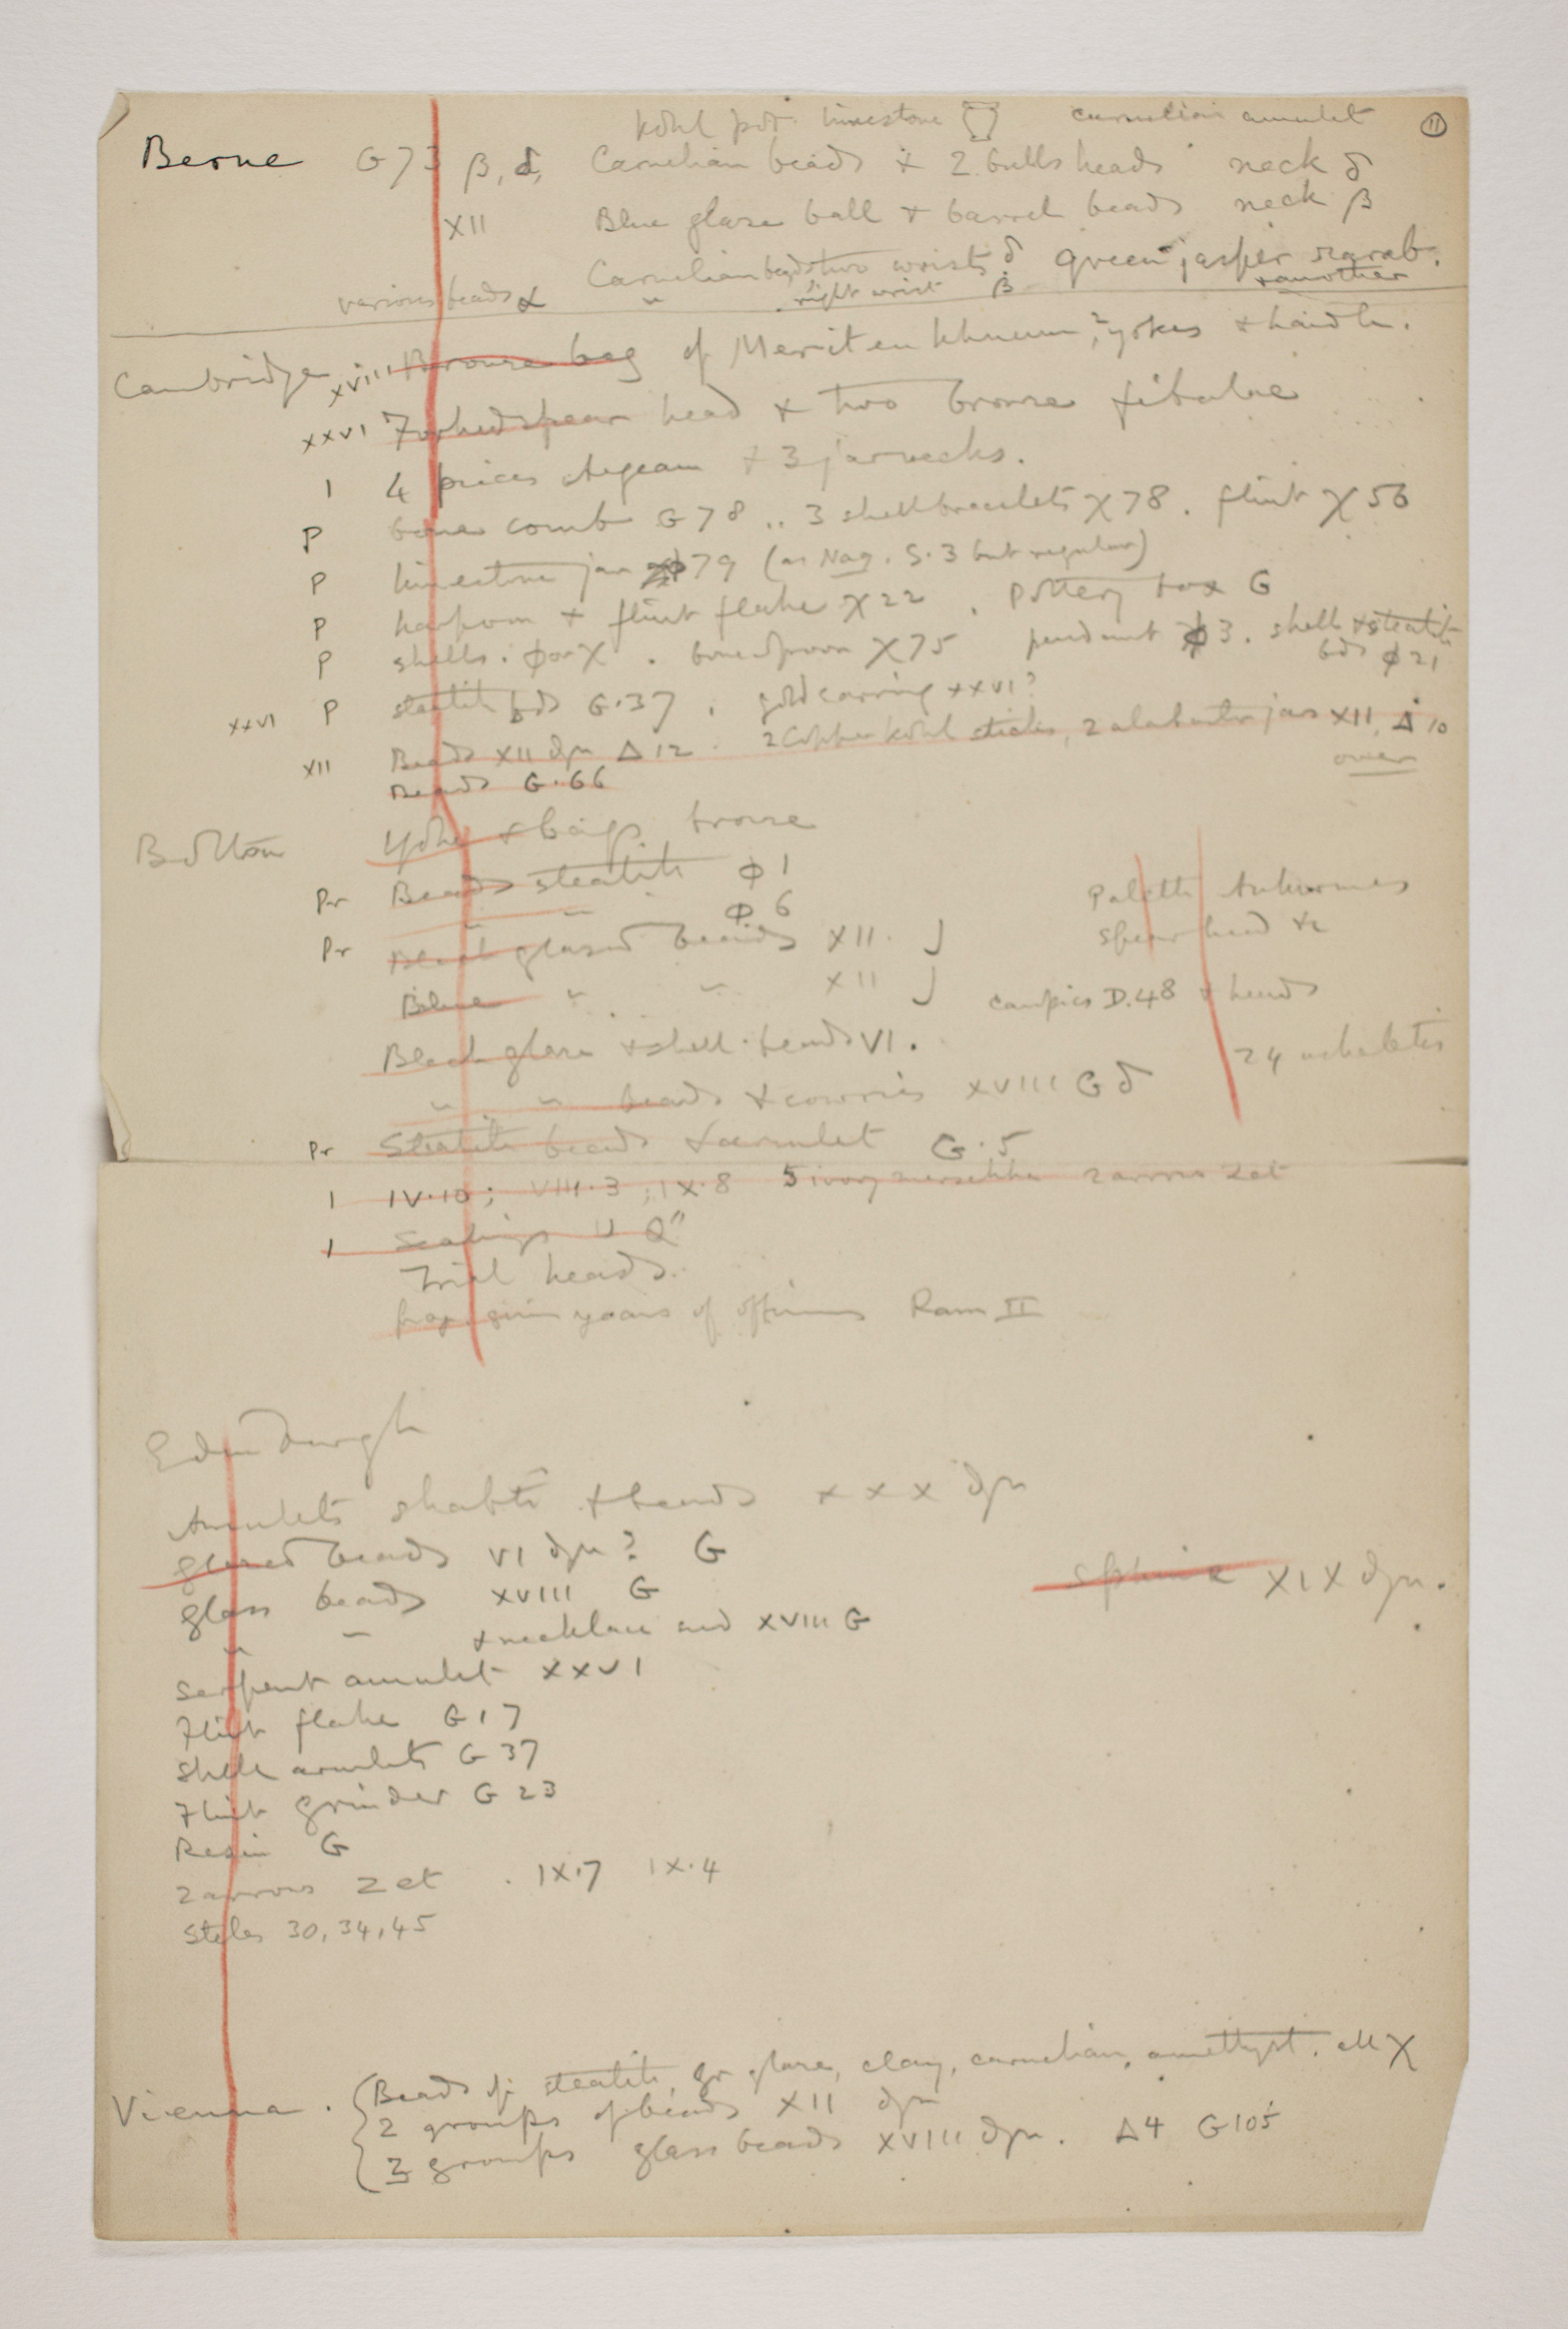 Kohl pot. limestone carnelian amulet 11
Berne G73 β, δ, Carnelian beads & 2 bulls heads neck δ
XII Blue glaze ball & barrel beads neck β
Carnelian beads two wrists δ green jasper scarab.
various beads α " right wrist β & another
Cambridge XVIII Bronze bag of Merit en khnum, 2 yokes & handle.
XXVI Forked spear head & two bronze fibulae
1 4 pieces Aegean & 3 jar necks.
P bone comb G78 .. 3 shell bracelets χ78. flint χ56
P limestone jar φ79 (as Naq. S.3 but regular)
P harpoon & flint flake χ22. Pottery box G
P shells. φ or χ. bone spoon χ75 pendant φ3. shell & steatite
bds φ21
XXVI P steatite bds G.37. gold earring XXVI?
XII Beads XII dyn Δ12. 2 Copper kohl sticks, 2 alabaster jars XII, Δ10
Beads G.66 over
Bolton Yoke & bags bronze
Pr Beads steatite φ1
" " φ6
Palette Anhurmes
Pr Black glazed beads XII. J
spear head &c
Blue " " XII J
canopics D.48 & heads
Black glaze & shell beads VI.
24 ushabtis
" " beads & cowries XVIII G δ
Pr Steatite beads & amulet G.5
1 IV.10; VIII.3; IX.8 5 ivory 2 arrows Zet
1 Sealings U Q"
Trial heads.
frag. giving years of Ram II
Edinburgh
Amulets shabti & beads XXX dyn
glazed beads VI dyn? G
sphinx XIX dyn.
glass beads XVIII G
" " & necklace and XVIII G
Serpent amulet XXVI
Flint flake G17
Shell armlets G37
Flint grinder G23
Resin G
2 arrows Zet . IX.7 IX.4
Steles 30, 34, 45
Vienna. Beads of steatite, gr glaze, clay, carnelian, amethyst. all χ
2 groups of beads XII dyn
3 groups glass beads XVIII dyn. Δ4 G105